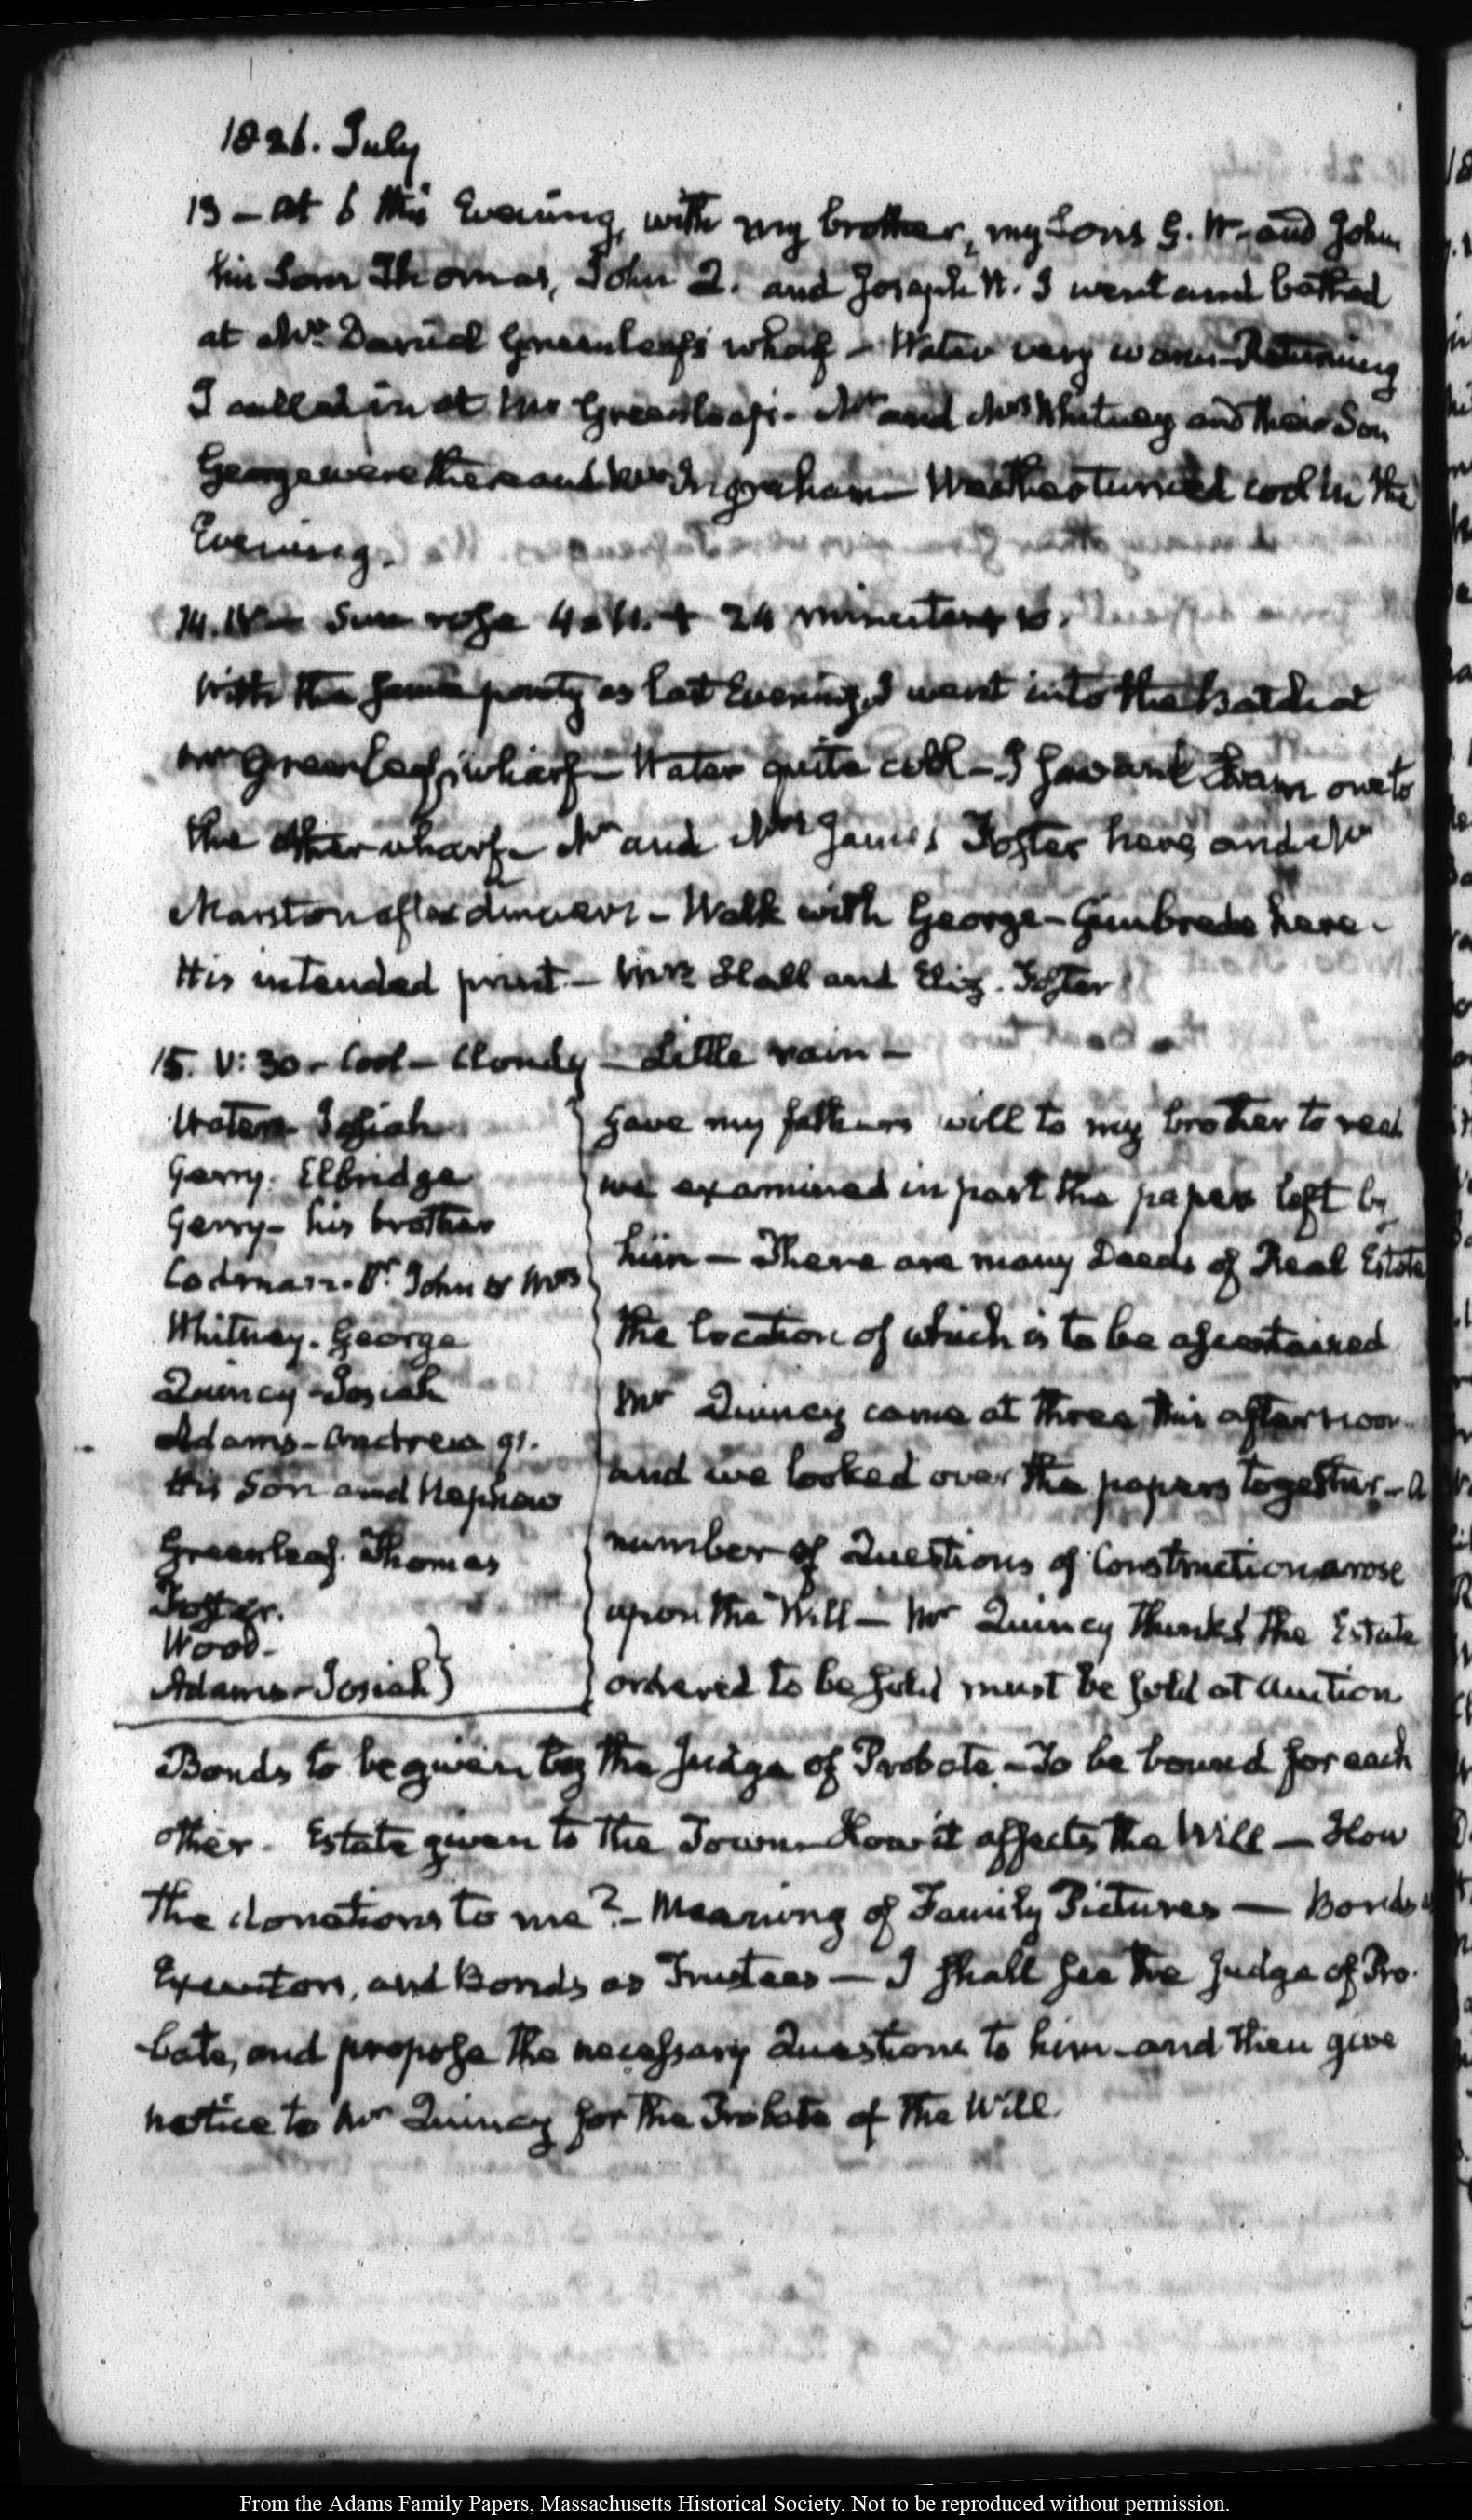 1826. July
13 – At 6 this Evening, with my brother, my Sons G. W. and John,
his Sons Thomas, John Q. and Joseph H. I went and bathed
at Mr. Daniel Greenleaf's wharf – Water very warm – Returning
I called in at Mr Greenleaf's – Mr and Mrs Whitney and their Son
George were there and Ingraham – Weather turned cool in the
Evening.
14. IV – Sun rose 4. + 24 minutes
With the same party as last Evening, I went into the Bath at
Mr Greenleaf's wharf – Water quite cold – I swam one to
the other wharf – Mr and Mrs James Foster here, and Mr
Marston after dinner – Walk with George – Gimbrede here –
His intended print – Mrs Hall and Eliz. Foster
15. V: 30 – Cool – Cloudy – Little rain –
Waters Josiah
Gerry. Elbridge
Gerry – his brother
Codman – Dr John & Mrs
Whitney. George
Quincy – Josiah
Adams – Andrew 91.
His Son and Nephew
Greenleaf. Thomas
Foster.
Wood –
Adams – Josiah }
Gave my father's will to my brother to read
we examined in part the papers left by
him – There are many Deeds of Real Estate
the location of which is to be ascertained
Mr Quincy came at three this afternoon
and we looked over the papers together – a
number of Questions of Construction arose
upon the Will – Mr Quincy thinks the Estate
ordered to be sold must be sold at auction
Bonds to be given to the Judge of Probate – To be bound for each
other. Estate given to the Town – How it affects the Will – How
the donations to me? – Meaning of Family Pictures – Bonds as
Executors, and Bonds as Trustees – I shall see the Judge of Pro-
bate, and propose the necessary Questions to him – and then give
notice to Mr Quincy for the Probate of the Will.
From the Adams Family Papers, Massachusetts Historical Society. Not to be reproduced without permission.